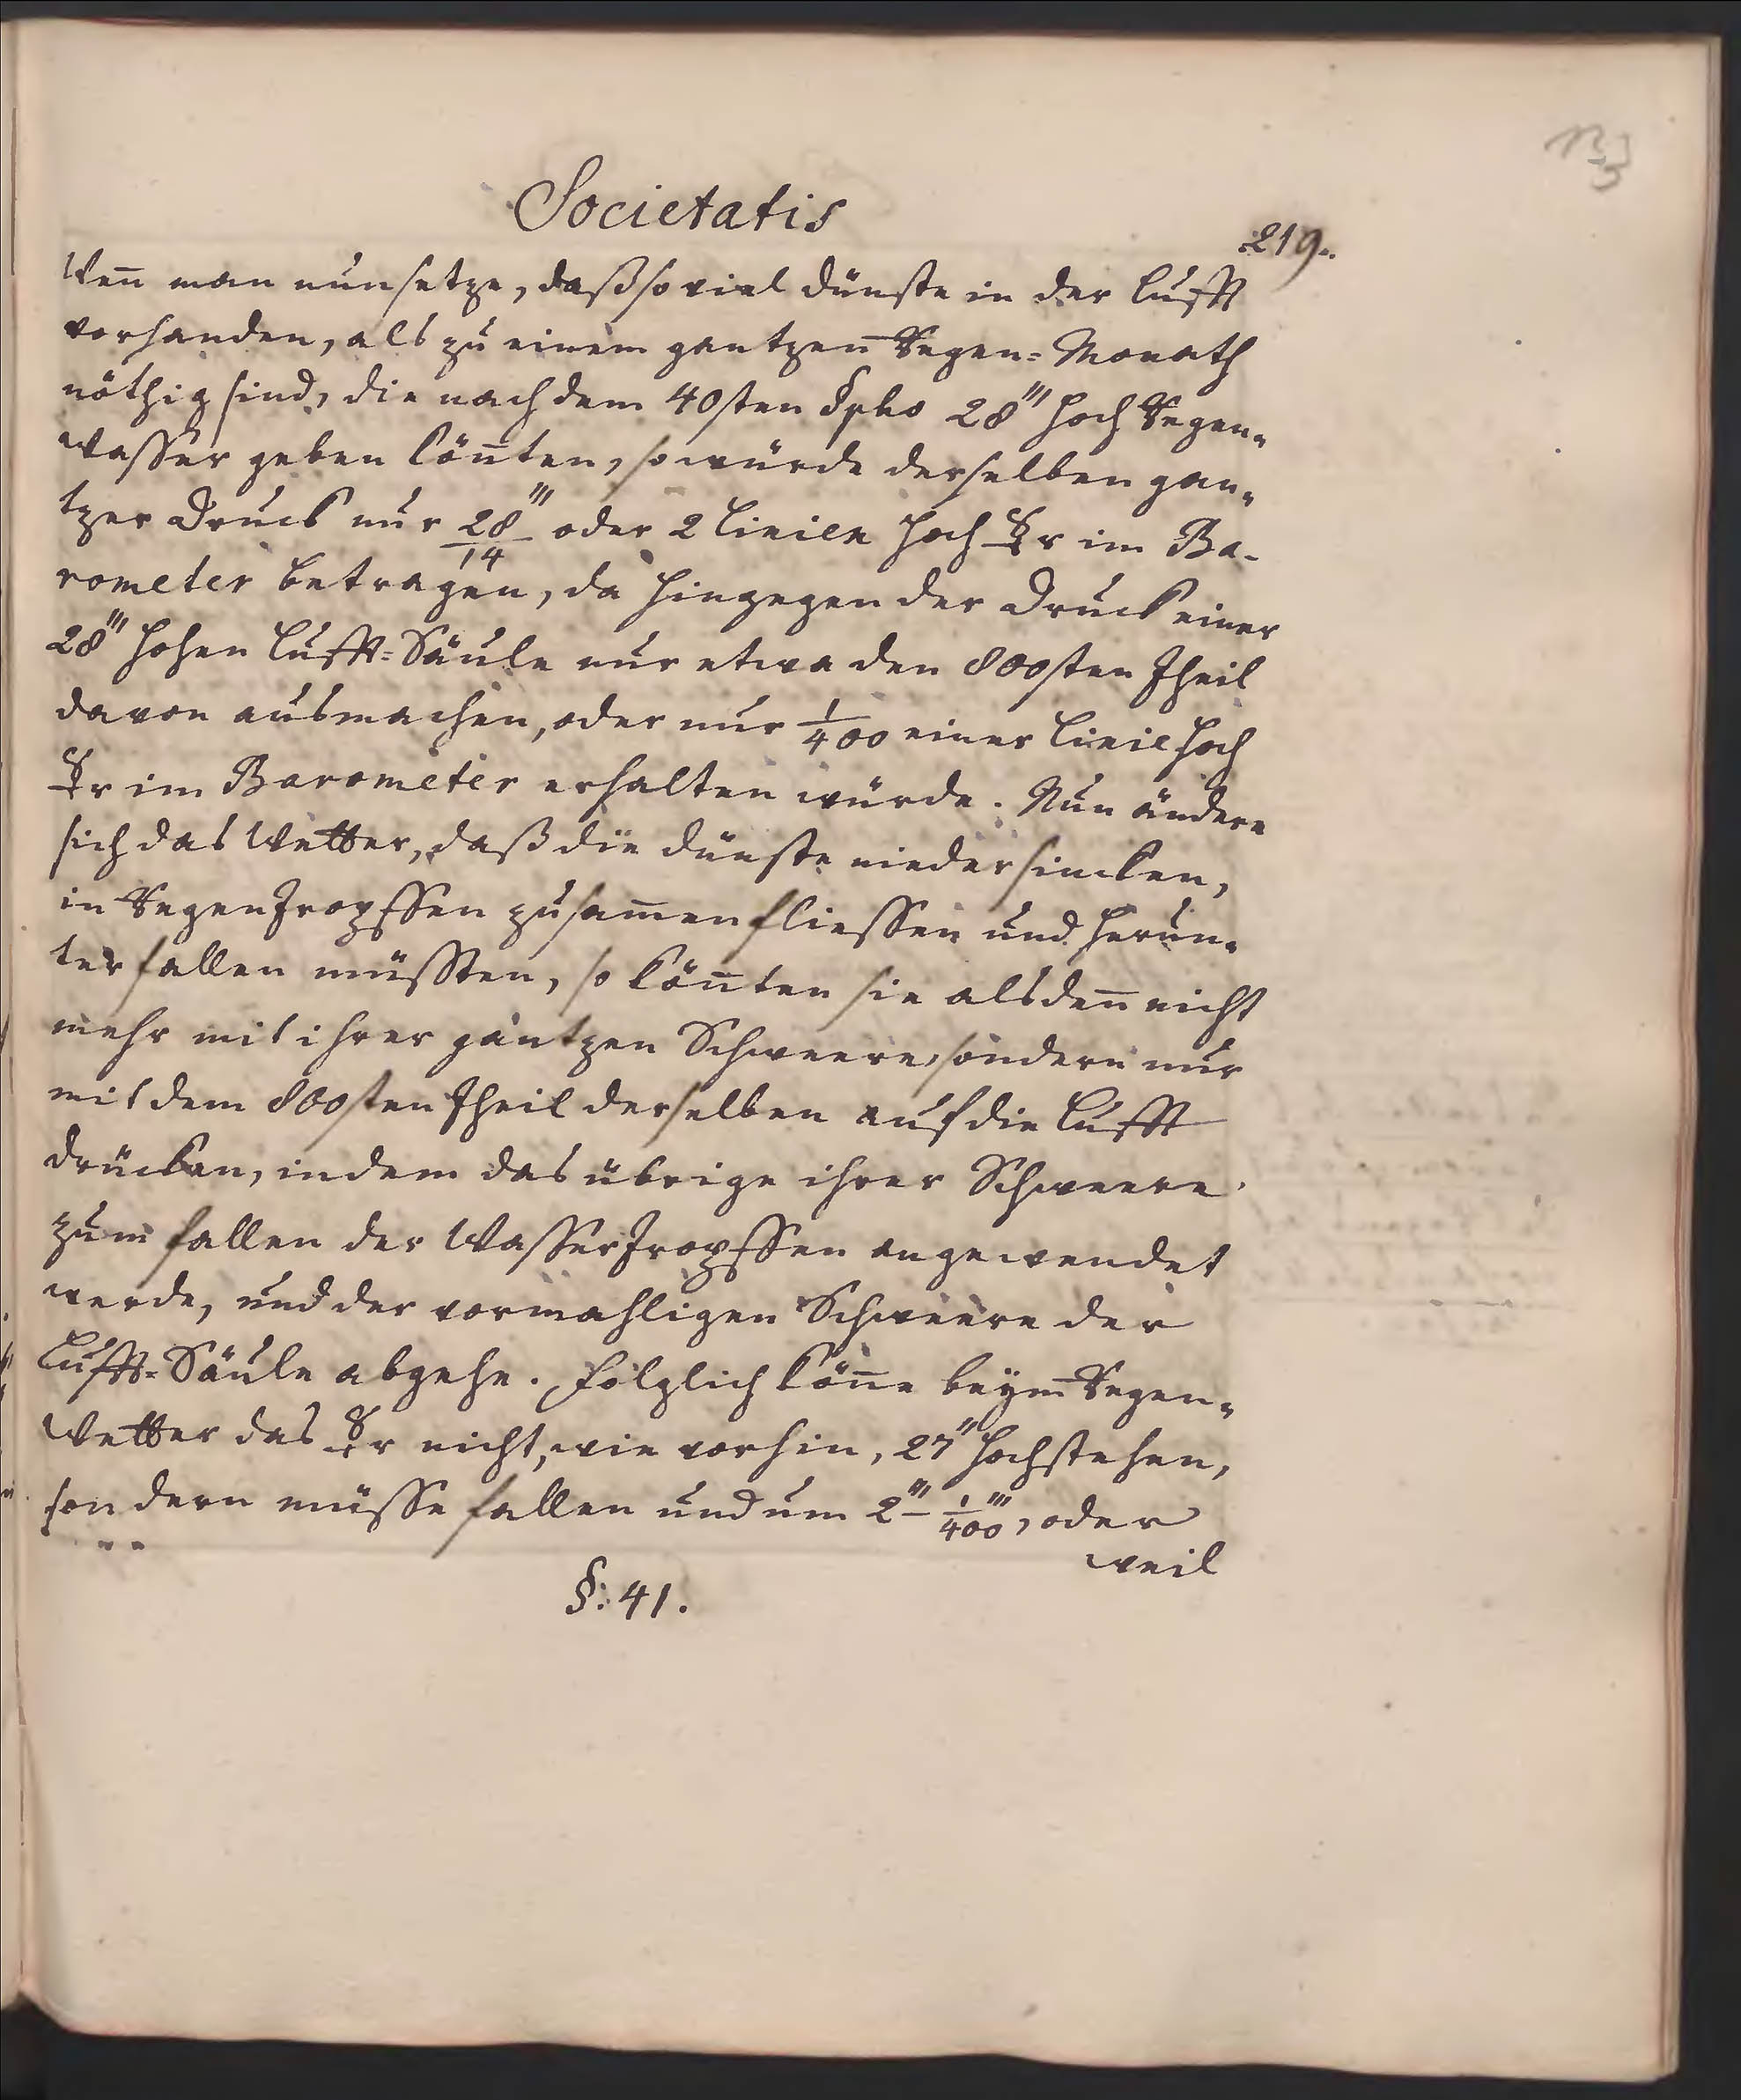 Societatis
219.
Weñ man nun setze, daß so viel Dünste in der Lufft
vorhanden, als zu einem gantzen Regen-Monath
nöthig sind, die nach dem 40sten §pho 28‴ hoch Regen-
wasser geben köñten, so würde derselben gan-
tzer Druck nur 28‴/14 oder 2 Linien hoch ☿r im Ba-
rometer betragen, da hingegen der Druck einer
28‴ hohen Lufft-Säule nur etwa den 800sten Theil
davon ausmachen, oder nur 1/400 einer Linie hoch
☿r im Barometer erhalten würde. Nun ändere
sich das Wetter, daß die Dünste niedersincken,
in Regen Tropffen zusam̄en fliessen und herun-
ter fallen müssten, so köñten sie alsdeñ nicht
mehr mit ihrer gantzen Schweere, sondern nur
mit dem 800sten Theil derselben auf die Lufft
drücken, indem das übrige ihrer Schweere
zum fallen der Wasser Tropffen angewendet
werde, und der vormahligen Schweere der
Lufft-Säule abgehe. Folglich köñe beym Regen-
Wetter das ☿r nicht, wie vorhin, 27″ hoch stehen,
sondern müsse fallen und um 2‴ – 1/400‴, oder
weil
§: 41.